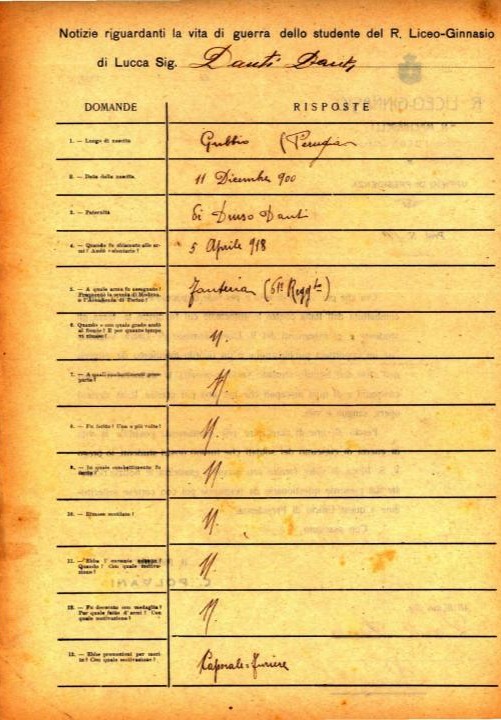 Notizie riguardanti la vita di guerra dello studente del R. Liceo-Ginnasio
di Lucca Sig. Danti Dante
DOMANDE
RISPOSTE
1. — Luogo di nascita
Gubbio (Perugia)
2. — Data della nascita
11 Dicembre 900
3. — Paternità
di Druso Danti
4. — Quando fu chiamato alle armi? Andò volontario?
5 Aprile 918
5. — A quale arma fu assegnato?
Frequentò la scuola di Modena
o l'Accademia di Torino?
Fanteria (61º Reggto)
6. Quando e con quale grado andò
al fronte? E per quanto tempo
vi rimase?
N.
7. — A quali combattimenti prese
parte?
N.
8. — Fu ferito? Una o più volte?
N.
9. — In quale combattimento fu
ferito?
N.
10. — Rimase mutilato?
N.
11. — Ebbe l'encomio
Quando? Con quale motivazione?
N.
12. — Fu decorato con medaglia?
Per quale fatto d'armi? Con
quale motivazione?
N.
13. — Ebbe promozioni per merito? Con quale motivazione?
Caporale=Furiere